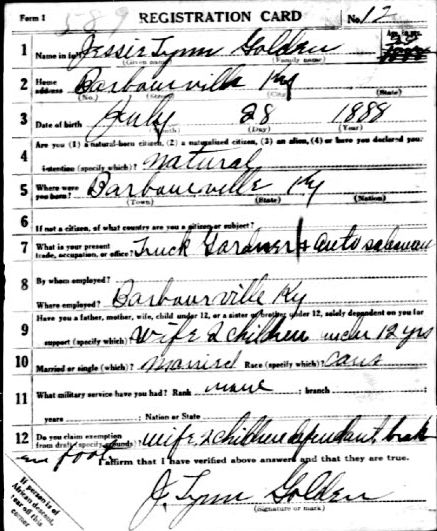 Form 1 589 REGISTRATION CARD No. 12
1 Name in full Jessie Lynn Golden Age, in yrs. 28
(Given name) (Family name)
2 Home address Barbourville Ky
(No.) (Street) (City) (State)
3 Date of birth July 28 1888
(Month) (Day) (Year)
Are you (1) a natural-born citizen, (2) a naturalized citizen, (3) an alien, (4) or have you declared your
4 intention (specify which)? natural
5 Where were you born? Barbourville Ky
(Town) (State) (Nation)
6 If not a citizen, of what country are you a citizen or subject?
7 What is your present trade, occupation, or office? Truck Gardner + auto salesman
8 By whom employed?
Where employed? Barbourville Ky.
Have you a father, mother, wife, child under 12, or a sister or brother under 12, solely dependent on you for
9 support (specify which)? wife 2 children under 12 yrs
10 Married or single (which)? married Race (specify which)? Caus
11 What military service have you had? Rank none ; branch
years ; Nation or State
12 Do you claim exemption from draft (specify grounds)? wife 2 children dependant, brok
en foot
I affirm that I have verified above answers and that they are true.
J. Lynn Golden
(Signature or mark)
If person is of
African descent,
tear off this
corner